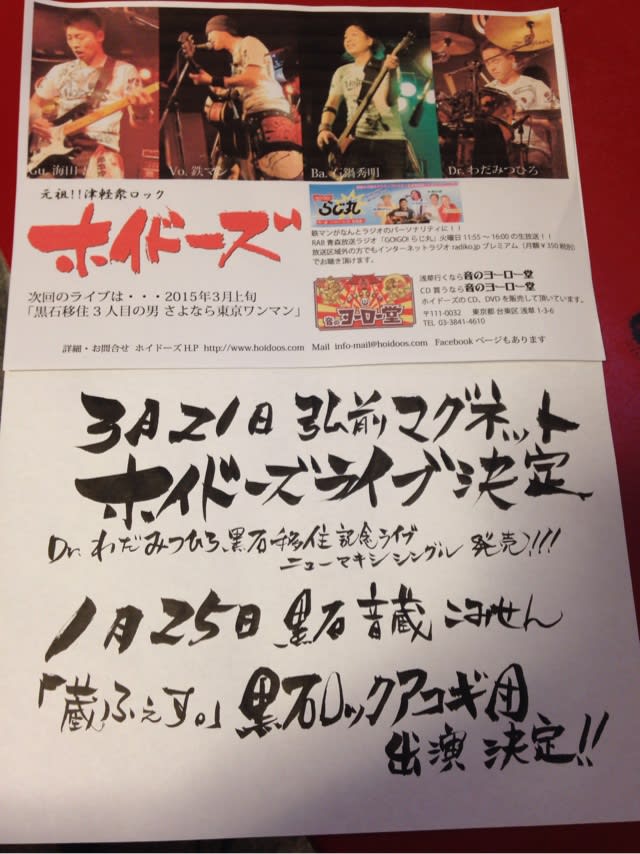 Gu. 海田
Vo. 鉄マン
Ba. 石鍋秀明
Dr. わだみつひろ
元祖!!津軽衆ロック
ホイドーズ
次回のライブは・・・2015年3月上旬
「黒石移住3人目の男 さよなら東京ワンマン」
らじ丸
鉄マンがなんとラジオのパーソナリティに!!
RAB 青森放送ラジオ「GO!GO! らじ丸」火曜日 11:55 〜 16:00 の生放送!!
放送区域外の方でもインターネットラジオ radiko.jp プレミアム(月額¥350 税別)
でお聴き頂けます。
音のヨーロー堂
浅草行くなら音のヨーロー堂
CD 買うなら音のヨーロー堂
ホイドーズの CD、DVD を販売して頂いています。
〒111-0032 東京都 台東区 浅草 1-3-6
TEL 03-3841-4610
詳細・お問合せ ホイドーズ H.P http://www.hoidoos.com Mail info-mail@hoidoos.com Facebook ページもあります
3月21日 弘前マグネット
ホイドーズライブ決定
Dr. わだみつひろ 黒石移住記念ライブ
ニューマキシシングル 発売!!!
1月25日 黒石 音蔵 こみせん
「蔵ふぇす。」黒石ロックアコギ団
出演 決定!!